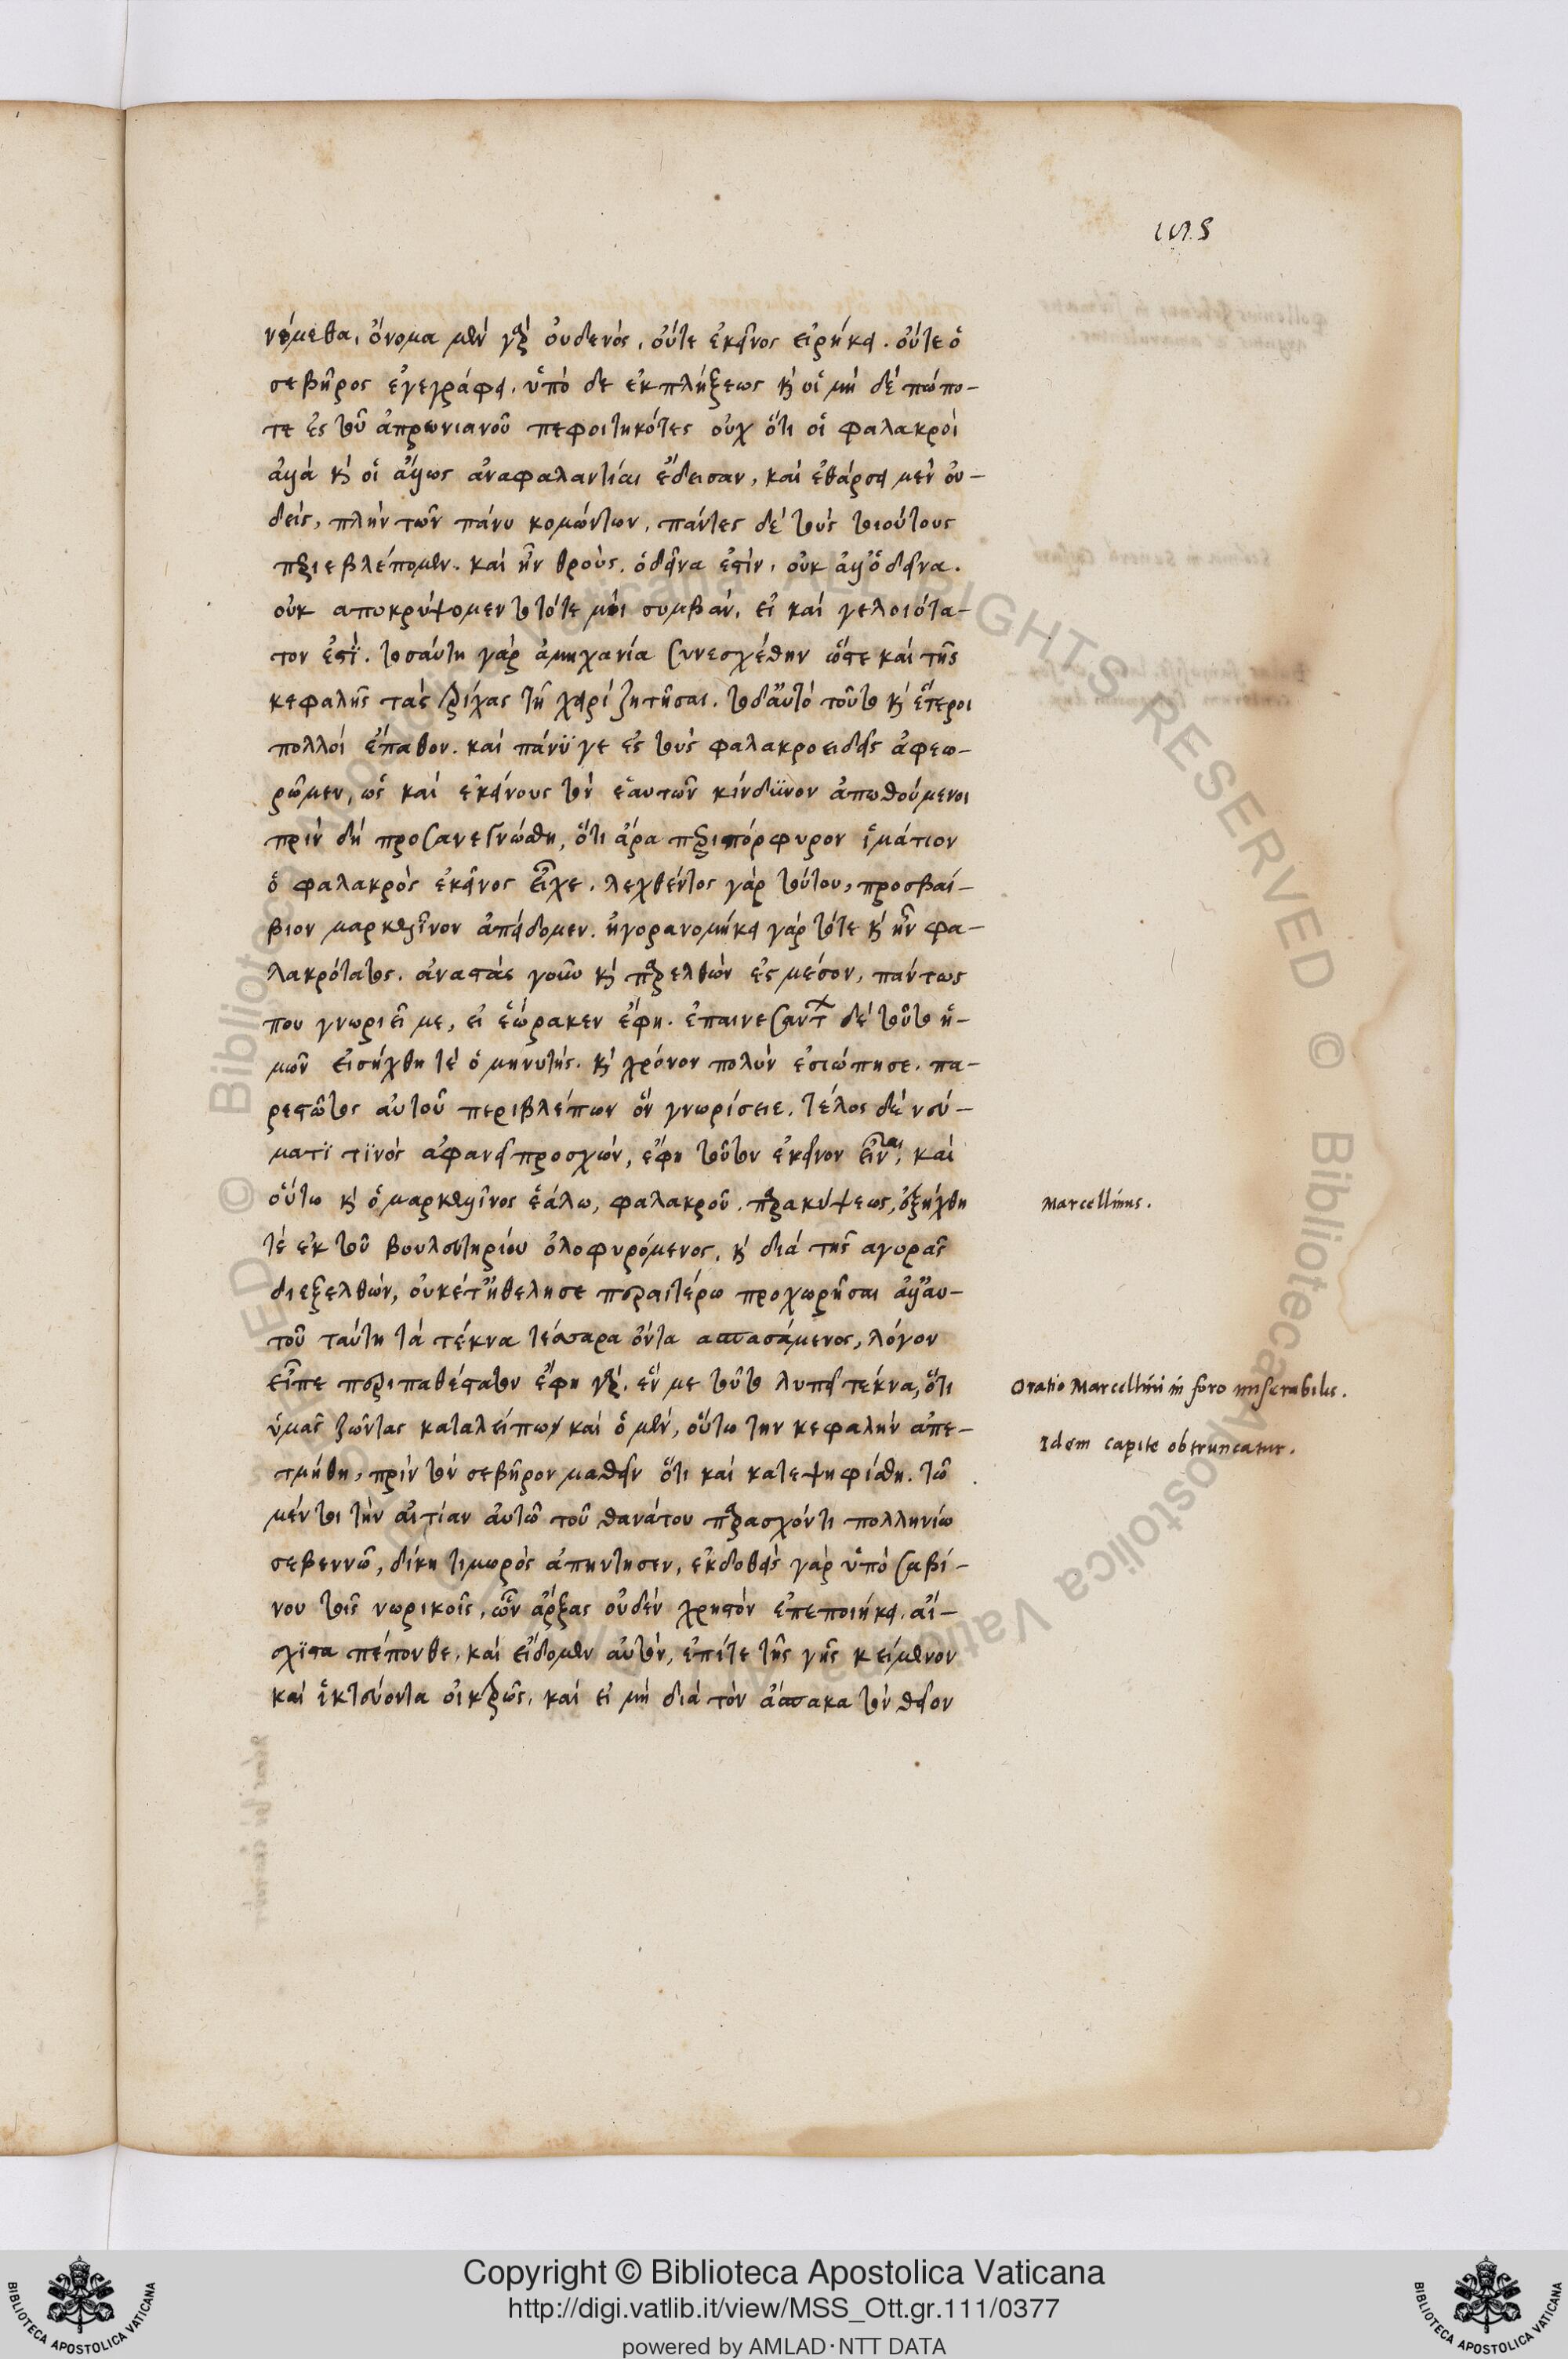 νόμεθα, ὄνομα μὲν γὰρ οὐδενὸς, οὔτε ἐκεῖνος εἰρήκει. οὔτε ὁ
σεβῆρος ἐγεγράφει. ὑπὸ δε ἐκπλήξεως καὶ οἱ μὴ δὲ πώπο-
τε ἐς τοῦ ἀπρωνιανοῦ πεφοιτηκότες οὐχ ὅτι οἱ φαλακροὶ
ἀλλὰ καὶ οἱ ἄλλως ἀναφαλαντίαι ἔδεισαν, καὶ ἐθάρσει μὲν οὐ-
δεὶς, πλὴν τῶν πάνυ κομώντων, πάντες δὲ τοὺς τοιούτους
περιεβλέπομεν. καὶ ἦν θροὺς. ὁ δεῖνα ἐστὶν. οὐκ ἀλλ' ὁ δεῖνα.
οὐκ αποκρύψομεν τὸ τότε μοι συμβὰν, εἰ καὶ γελοιότα-
τον ἐστὶ. τοσαύτη γὰρ ἀμηχανία συνεσχέθην ὥστε καὶ τῆς
κεφαλῆς τὰς τρίχας τῇ χειρὶ ζητῆσαι. τὸ δ' αὐτὸ τοῦτο καὶ ἕτεροι
πολλοὶ ἔπαθον. καὶ πάνυ γε ἐς τοὺς φαλακροειδεῖς ἀφεω-
ρῶμεν, ὡς καὶ ἐκείνους τὸν ἑαυτῶν κίνδυνον ἀπωθούμενοι
πρὶν δὴ προσανεγνώσθη, ὅτι ἄρα περιπόρφυρον ἱμάτιον
ὁ φαλακρὸς ἐκεῖνος εἶχε. λεχθέντος γὰρ τούτου, προσβαί-
βιον μαρκελλῖνον ἀπείδομεν. ἠγορανομήκει γὰρ τότε καὶ ἦν φα-
λακρότατος. ἀναστὰς γοῦν καὶ παρελθὼν ἐς μέσον, πάντως
που γνωριεῖ με, εἰ ἑώρακεν ἔφη. ἐπαινεσάντων δὲ τοῦτο ἡ-
μῶν εἰσήχθη τὲ ὁ μηνυτὴς. καὶ χρόνον πολὺν ἐσιώπησε. πα-
ρεστῶτος αὐτοῦ περιβλέπων ὃν γνωρίσειε. τέλος δὲ νεύ-
ματι τινὸς ἀφανεῖ προσχὼν, ἔφη τοῦτον ἐκεῖνον εἶναι, καὶ
οὕτω καὶ ὁ μαρκελλῖνος ἑάλω, φαλακροῦ παρακύψεως, ἐξήχθη
τὲ ἐκ τοῦ βουλευτηρίου ὀλοφυρόμενος, καὶ διὰ τῆς αγορᾶς
διεξελθὼν, οὐκέτ' ἠθέλησε περαιτέρω προχωρῆσαι ἀλλ' αυ-
τοῦ ταύτη τὰ τέκνα τέσσαρα ὄντα ασπασάμενος, λόγον
εἶπε περιπαθέστατον ἔφη γὰρ. ἕν με τοῦτο λυπεῖ τέκνα, ὅτι
ὑμᾶς ζῶντας καταλείπω καὶ ὁ μὲν, οὕτω την κεφαλὴν ἀπε-
τμήθη, πρὶν τὸν σεβῆρον μαθεῖν ὅτι καὶ κατεψηφίσθη. τῷ
μέντοι τὴν αἰτίαν αὐτῷ τοῦ θανάτου παρασχόντι πολληνίῳ
σεβεννῷ, δίκη τιμωρὸς ἀπήντησεν, ἐκδοθεὶς γὰρ ὑπὸ σαβί-
νου τοῖς νωρικοῖς, ὧν ἄρξας οὐδὲν χρηστὸν ἐπεποιήκει. αἴ-
σχιστα πέπονθε. καὶ εἴδομεν αὐτὸν, ἐπί τε τῆς γῆς κείμενον
καὶ ἱκετεύοντα οἰκτρῶς, καὶ εἰ μὴ διὰ τὸν ἄσπακα τὸν θεῖον
Marcellinus.
Oratio Marcellini in foro miserabilis.
Idem capite obtruncatur.
Copyright © Biblioteca Apostolica Vaticana
http://digi.vatlib.it/view/MSS_Ott.gr.111/0377
powered by AMLAD·NTT DATA